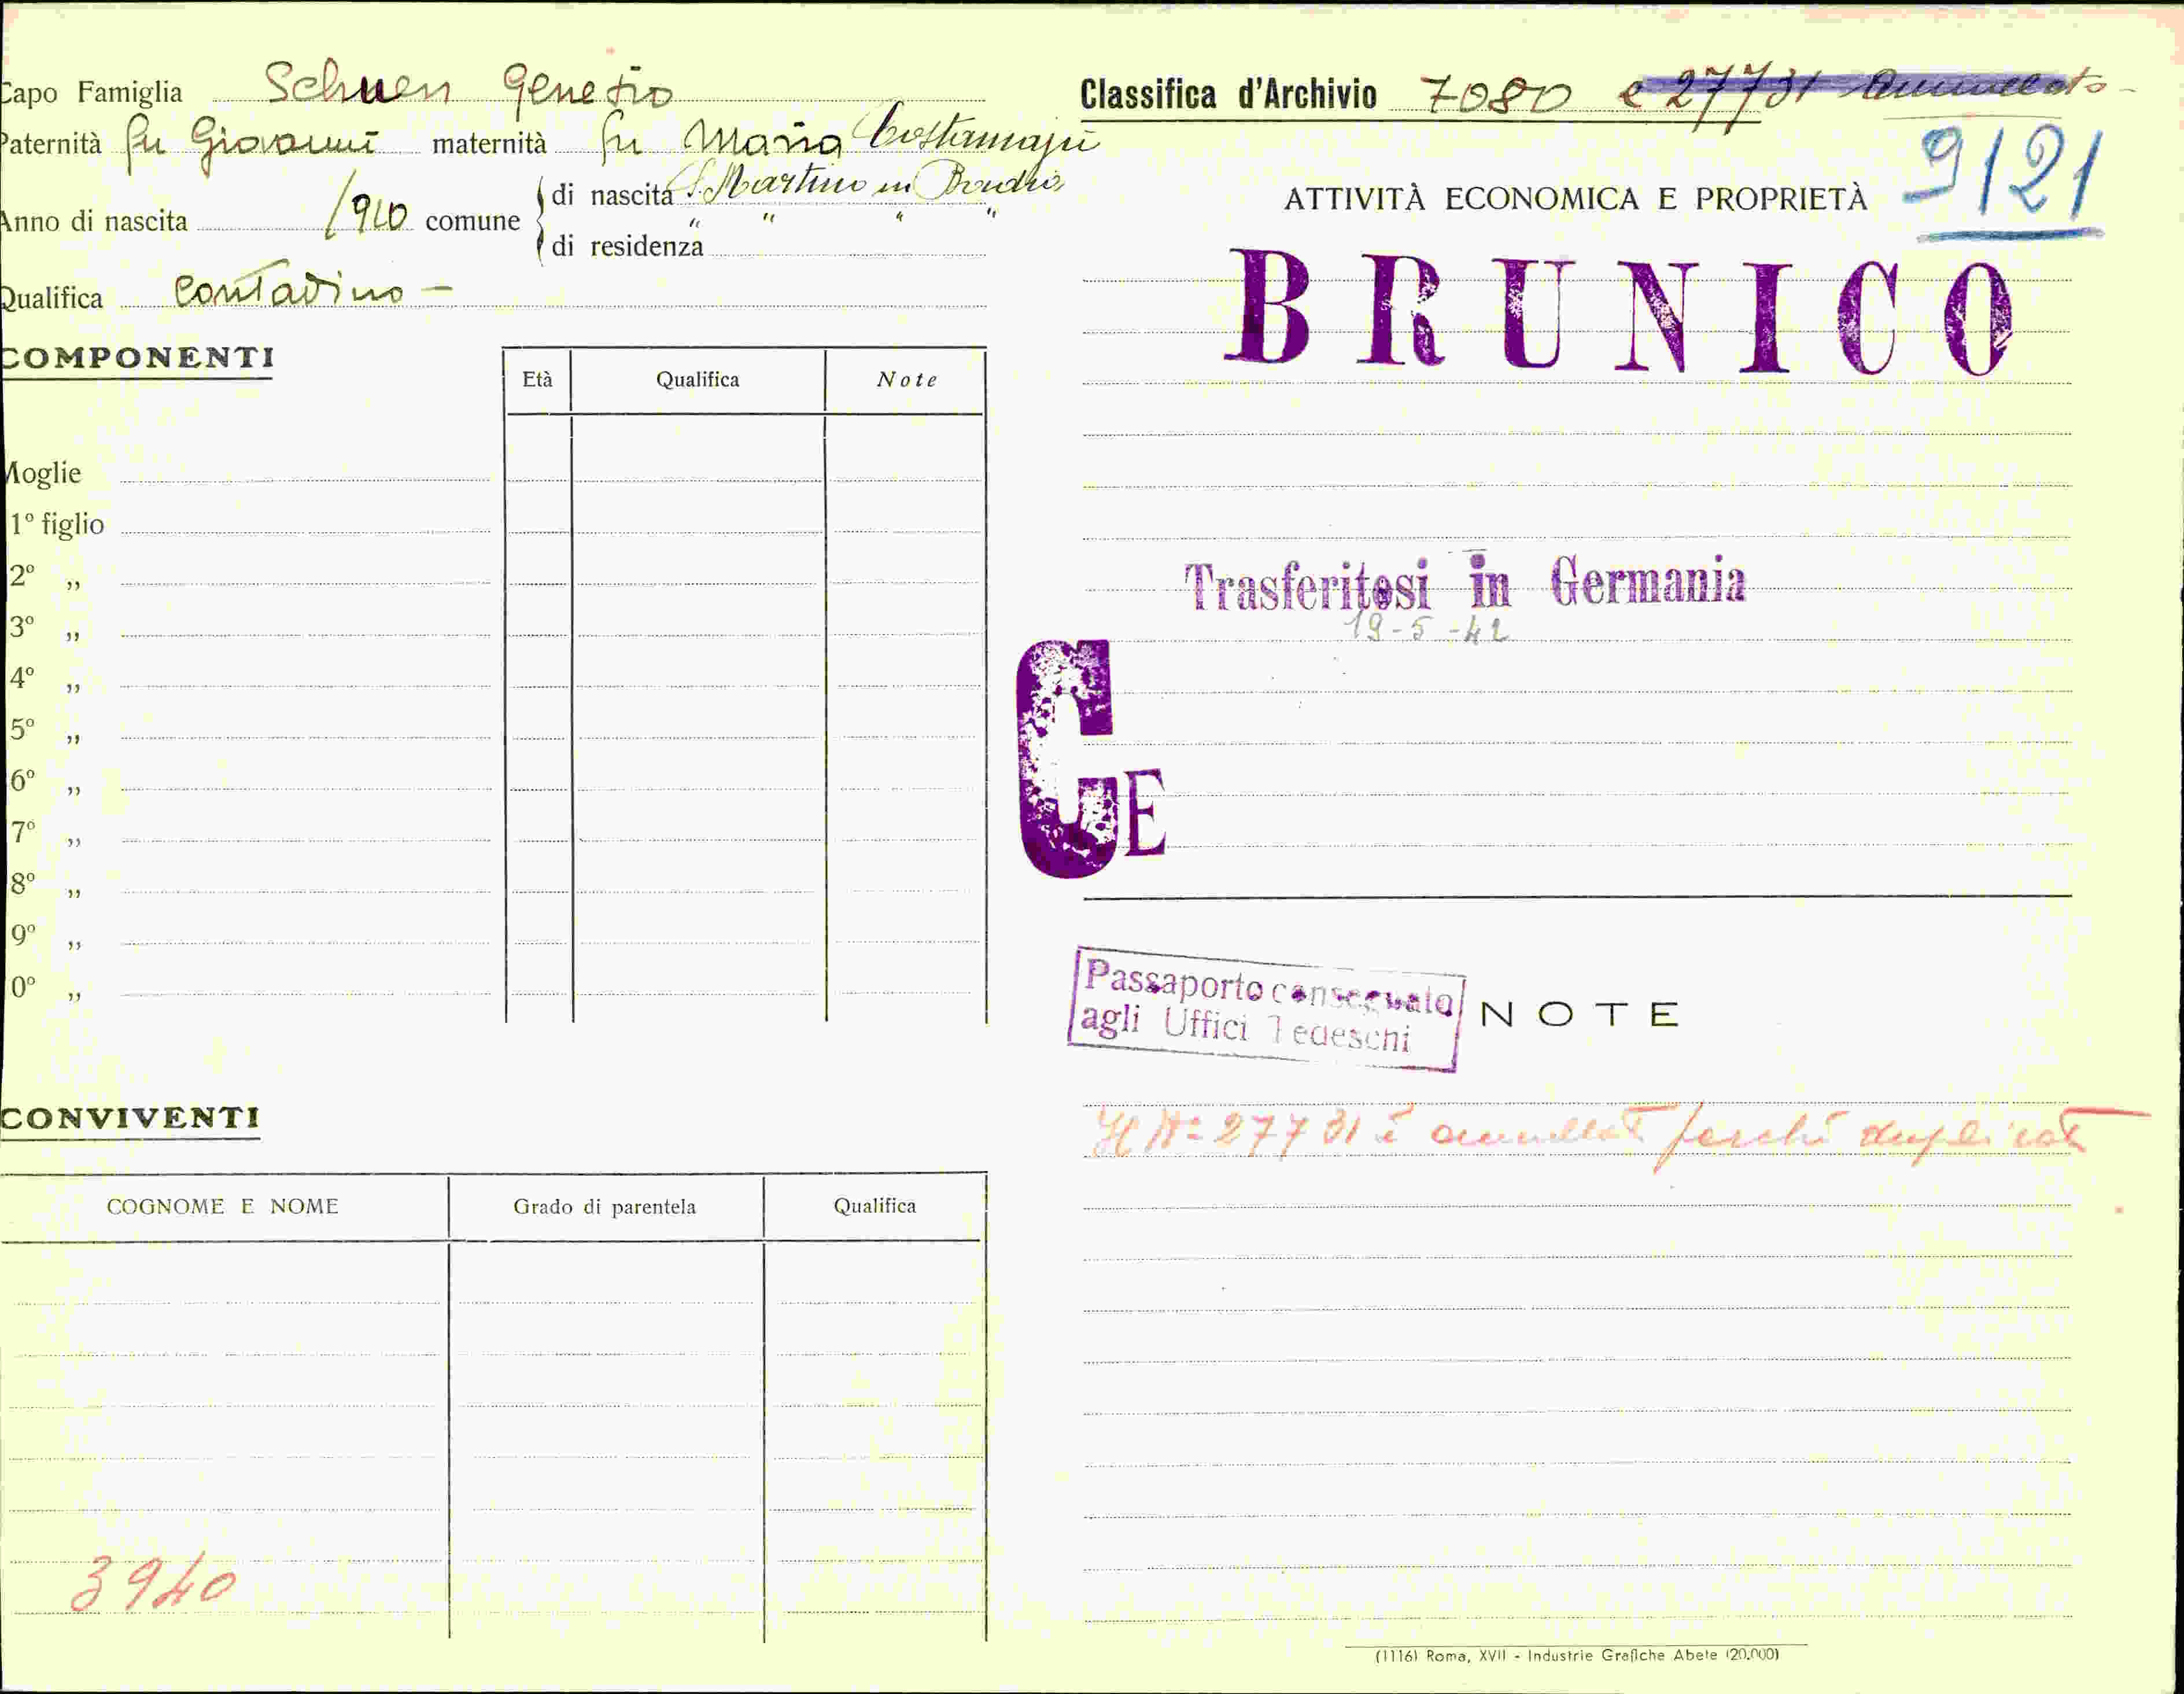 Capo Famiglia Schuen Genesio
Paternità fu Giovanni maternità fu Maria Costamajú
Anno di nascita 1910 comune
di nascita S. Martino in Badia
di residenza " " " "
Qualifica Contadino -
COMPONENTI
Età Qualifica Note
Moglie
1º figlio
2º „
3º „
4º „
5º „
6º „
7º „
8º „
9º „
0º „
CONVIVENTI
COGNOME E NOME Grado di parentela Qualifica
3940
Classifica d'Archivio 7080 e 27731 Annullato -
9121
ATTIVITÀ ECONOMICA E PROPRIETÀ
BRUNICO
Trasferitosi in Germania
19-5-42
CE
Passaporto consegnato
agli Uffici Tedeschi
NOTE
Il Nº 27731 è annullato perché duplicato
(1116) Roma, XVII - Industrie Grafiche Abete (20.000)